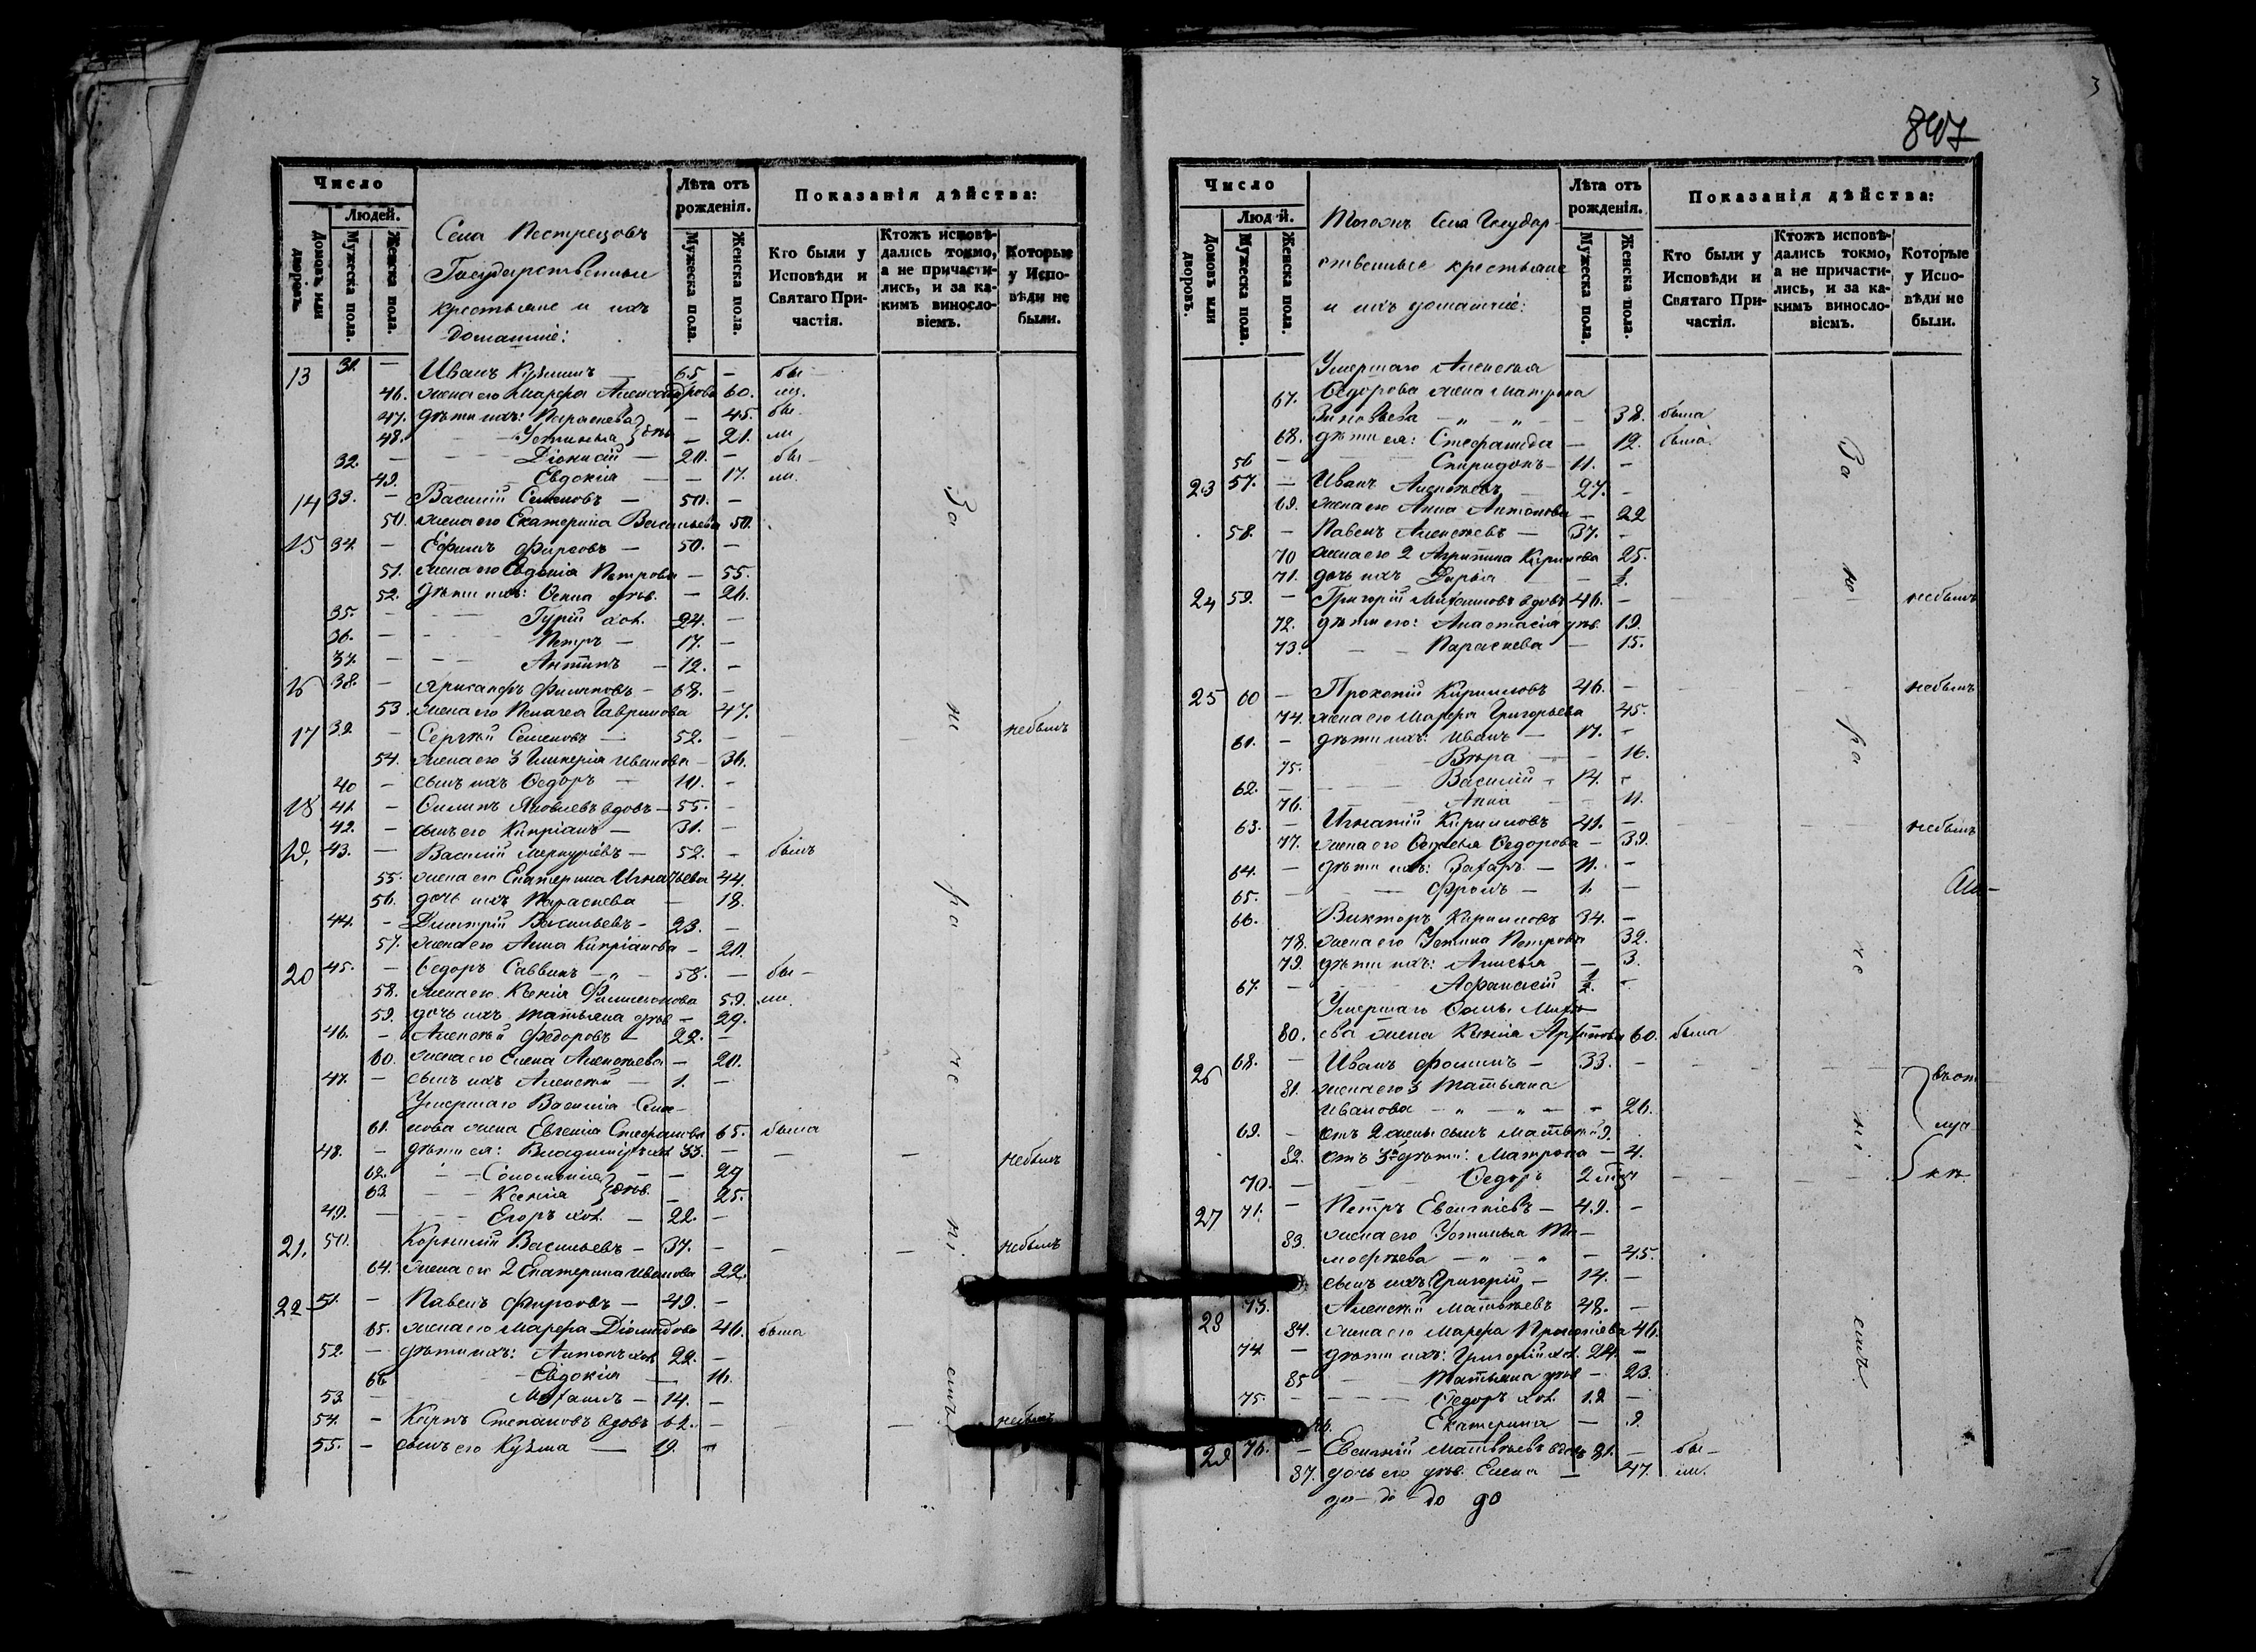 Число
Людей.
Домовъ или дворовъ.
Мужеска пола.
Женска пола.
Села Пестрецовъ
Государственные
крестьяне и ихъ
домашніе:
Лѣта отъ рожденія.
Мужеска пола.
Женска пола.
Показанія дѣйства:
Кто были у Исповѣди и Святаго Причастія.
Ктожъ исповѣдались токмо, а не причастились, и за какимъ винословіемъ.
Которые у Исповѣди не были.
13 31. — Иванъ Кузминъ — 65 — бы-
46. жена его Марфа Александрова 60. ли.
47. дѣти ихъ: Параскева — 45. бы-
48. Устинья дѣв. — 21. ли
32. — Діонисій — 20. — бы-
49. Евдокія — 17. ли.
14 33. — Василій Семеновъ — 50. —
50. жена его Екатерина Васильева 50.
15 34. — Ефимъ Фирсовъ — 50. —
51. жена его Евдокія Петрова — 55.
52. дѣти ихъ: Ѳекла дѣв. — 26.
35. — Гурій хол. 24. —
36. — Петръ — 17. —
37. — Антипъ — 12. —
16 38. — Филиповъ — 68. —
53. жена его Пелагея Гаврилова 47.
17 39. — Сергѣй Семеновъ — 52. — небылъ
54. жена его 3 Гликерія Иванова — 36.
40 — сынъ ихъ Ѳедоръ — 10. —
18. 41. — Яковлевъ вдовъ — 55. —
42. — сынъ его Кипріанъ — 31. —
19. 43. — Василій Меркурьевъ — 52. — былъ
55. жена его Екатерина Игнатьева 44.
56. дочь ихъ Параскева — 18.
44. — Дмитрій Васильевъ — 23. —
57. жена его Анна Кипріанова — 20.
20 45. — Ѳедоръ Саввинъ — „ — 58. — бы-
58. жена его Ксенія Филимонова 59. ли.
59. дочь ихъ Татьяна дѣв — 29.
46. — Алексѣй Федоровъ — 22. —
60. жена его Елена Алексѣева — 20.
47. — сынъ ихъ Алексѣй — 1. —
Умершаго Василія Семе-
61. нова жена Евгенія Стефанова 65. была
48. — дѣти ея: Владиміръ хол 33. — небылъ
62. Соломонія — 29
63. Ксенія дѣв. — 25.
49. — Егоръ хол. — 22. —
21. 50. Корнилій Васильевъ — 37. — небылъ
64. жена его 2 Екатерина Иванова 22.
22 51. — Павелъ Фирсовъ — 49. —
65. жена его Марфа Діомидова 46. была
52. — дѣти ихъ: Антонъ хол 22. —
66. Евдокія — 16.
53. — Михаилъ — 14. —
54. — Карпъ Степановъ вдовъ 62. — небылъ
55. — сынъ его Кузма — 19. —
За не ра че ні емъ
3
847
Число
Людей.
Домовъ или дворовъ.
Мужеска пола.
Женска пола.
Тогожъ Села Государ-
ственные крестьяне
и ихъ домашніе:
Лѣта отъ рожденія.
Мужеска пола.
Женска пола.
Показанія дѣйства:
Кто были у Исповѣди и Святаго Причастія.
Ктожъ исповѣдались токмо, а не причастились, и за какимъ винословіемъ.
Которые у Исповѣди не были.
Умершаго Алексѣя
67. Ѳедорова жена Матрона
Зиновьева — „ — „ — 38. была
68. дѣти ея: Стефанида — 12. была.
56 — Спиридонъ — 11. —
23 57. — Иванъ Алексѣевъ 27. —
69. жена его Анна Антонова — 22
58. — Павелъ Алексѣевъ — 37. —
70 жена его 2 Агрипина Кирилова 25.
71. дочь ихъ Дарья — ½.
24 59. — Григорій Михаиловъ вдовъ 46. — небылъ
72. дѣти его: Анастасія дѣв. 19.
73. — — Параскева — 15.
25 60 — Прокопій Кириловъ 46. — небылъ
74. жена его Марфа Григорьева 45.
61. — дѣти ихъ: Иванъ — 17. —
75. Вѣра — — 16.
62. — Василій — 14. —
76. Анна — 11.
63. — Игнатій Кириловъ 41. — небылъ
77. жена его Ѳедорова — 39.
64. — дѣти ихъ: Захаръ — 11. —
65. — Фролъ — 1. —
66. Викторъ Кириловъ 34. —
78. жена его Устина Петрова 32.
79. дѣти ихъ: Анисья — 3.
67. — Афанасій ½. —
Умершаго
80. ева жена Ксенія 60. была
26 68. — Иванъ Фоминъ — 33. — въ от-
81. жена его 3 Татьяна
Иванова — „ — „ — 26.
69. — отъ 2 жены сынъ Матвѣй 9. луч-
82. отъ 3й дѣти: Матрона — 4.
70. — Ѳедоръ кѣ
27 71. — Петръ Евсигніевъ — 49. —
83. жена его Устинья Ти-
мофѣева — „ — „ — 45.
сынъ ихъ Григорій — 14. —
28 73. Алексѣй Матвѣевъ 48. —
84. жена его Марфа Прокопіева 46.
74. — дѣти ихъ: Григорій хол. 24. —
85 Татьяна дѣв — 23.
75. — Ѳедоръ хол. 19 —
86. Екатерина — 9.
29 76. — Евсигній Матвѣевъ вдовъ 81. — бы-
87. дочь его дѣв. Елена — 47. ли.
до до до до
За не ра че ні емъ